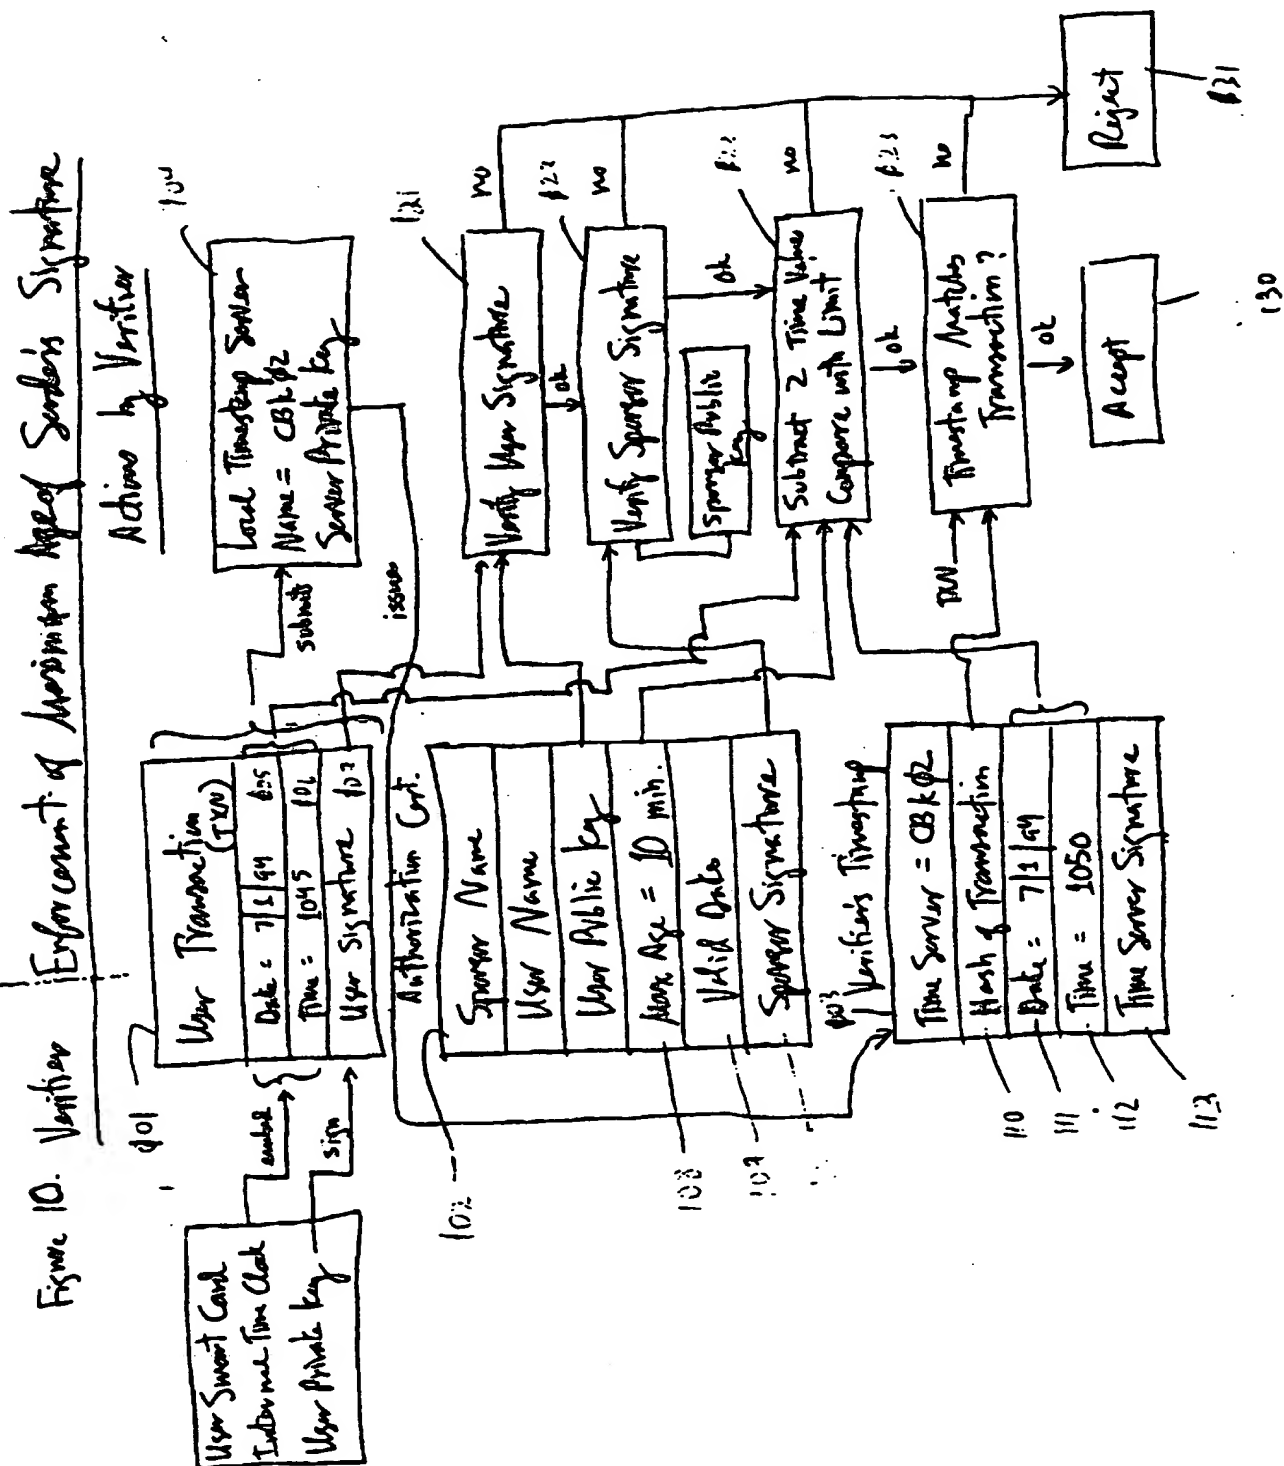 Figure 10. Verifier Enforcement of Maximum Age of Sender's Signature
Actions by Verifier
User Smart Card
Internal Time Clock
User Private Key
embed
sign
101
User Transaction
(TXN)
Date = 7/1/94
Time = 1045
User Signature
submit
Local Timestamp Server
Name = CBK02
Server Private Key
issue
102
Authorization Cert.
Sponsor Name
User Name
User Public Key
Max Age = 10 min.
Valid Date
Sponsor Signature
108
107
103
Verifier's Timestamp
Time Server = CBK02
Hash of Transaction
Date = 7/1/94
Time = 1050
Time Server Signature
110
111
112
113
121
Verify User Signature
no
ok
Verify Sponsor Signature
no
ok
Sponsor Public
Key
Subtract 2 Time Values
Compare with Limit
no
ok
TXN
123
Timestamp Matches
Transaction?
no
ok
Accept
130
Reject
131